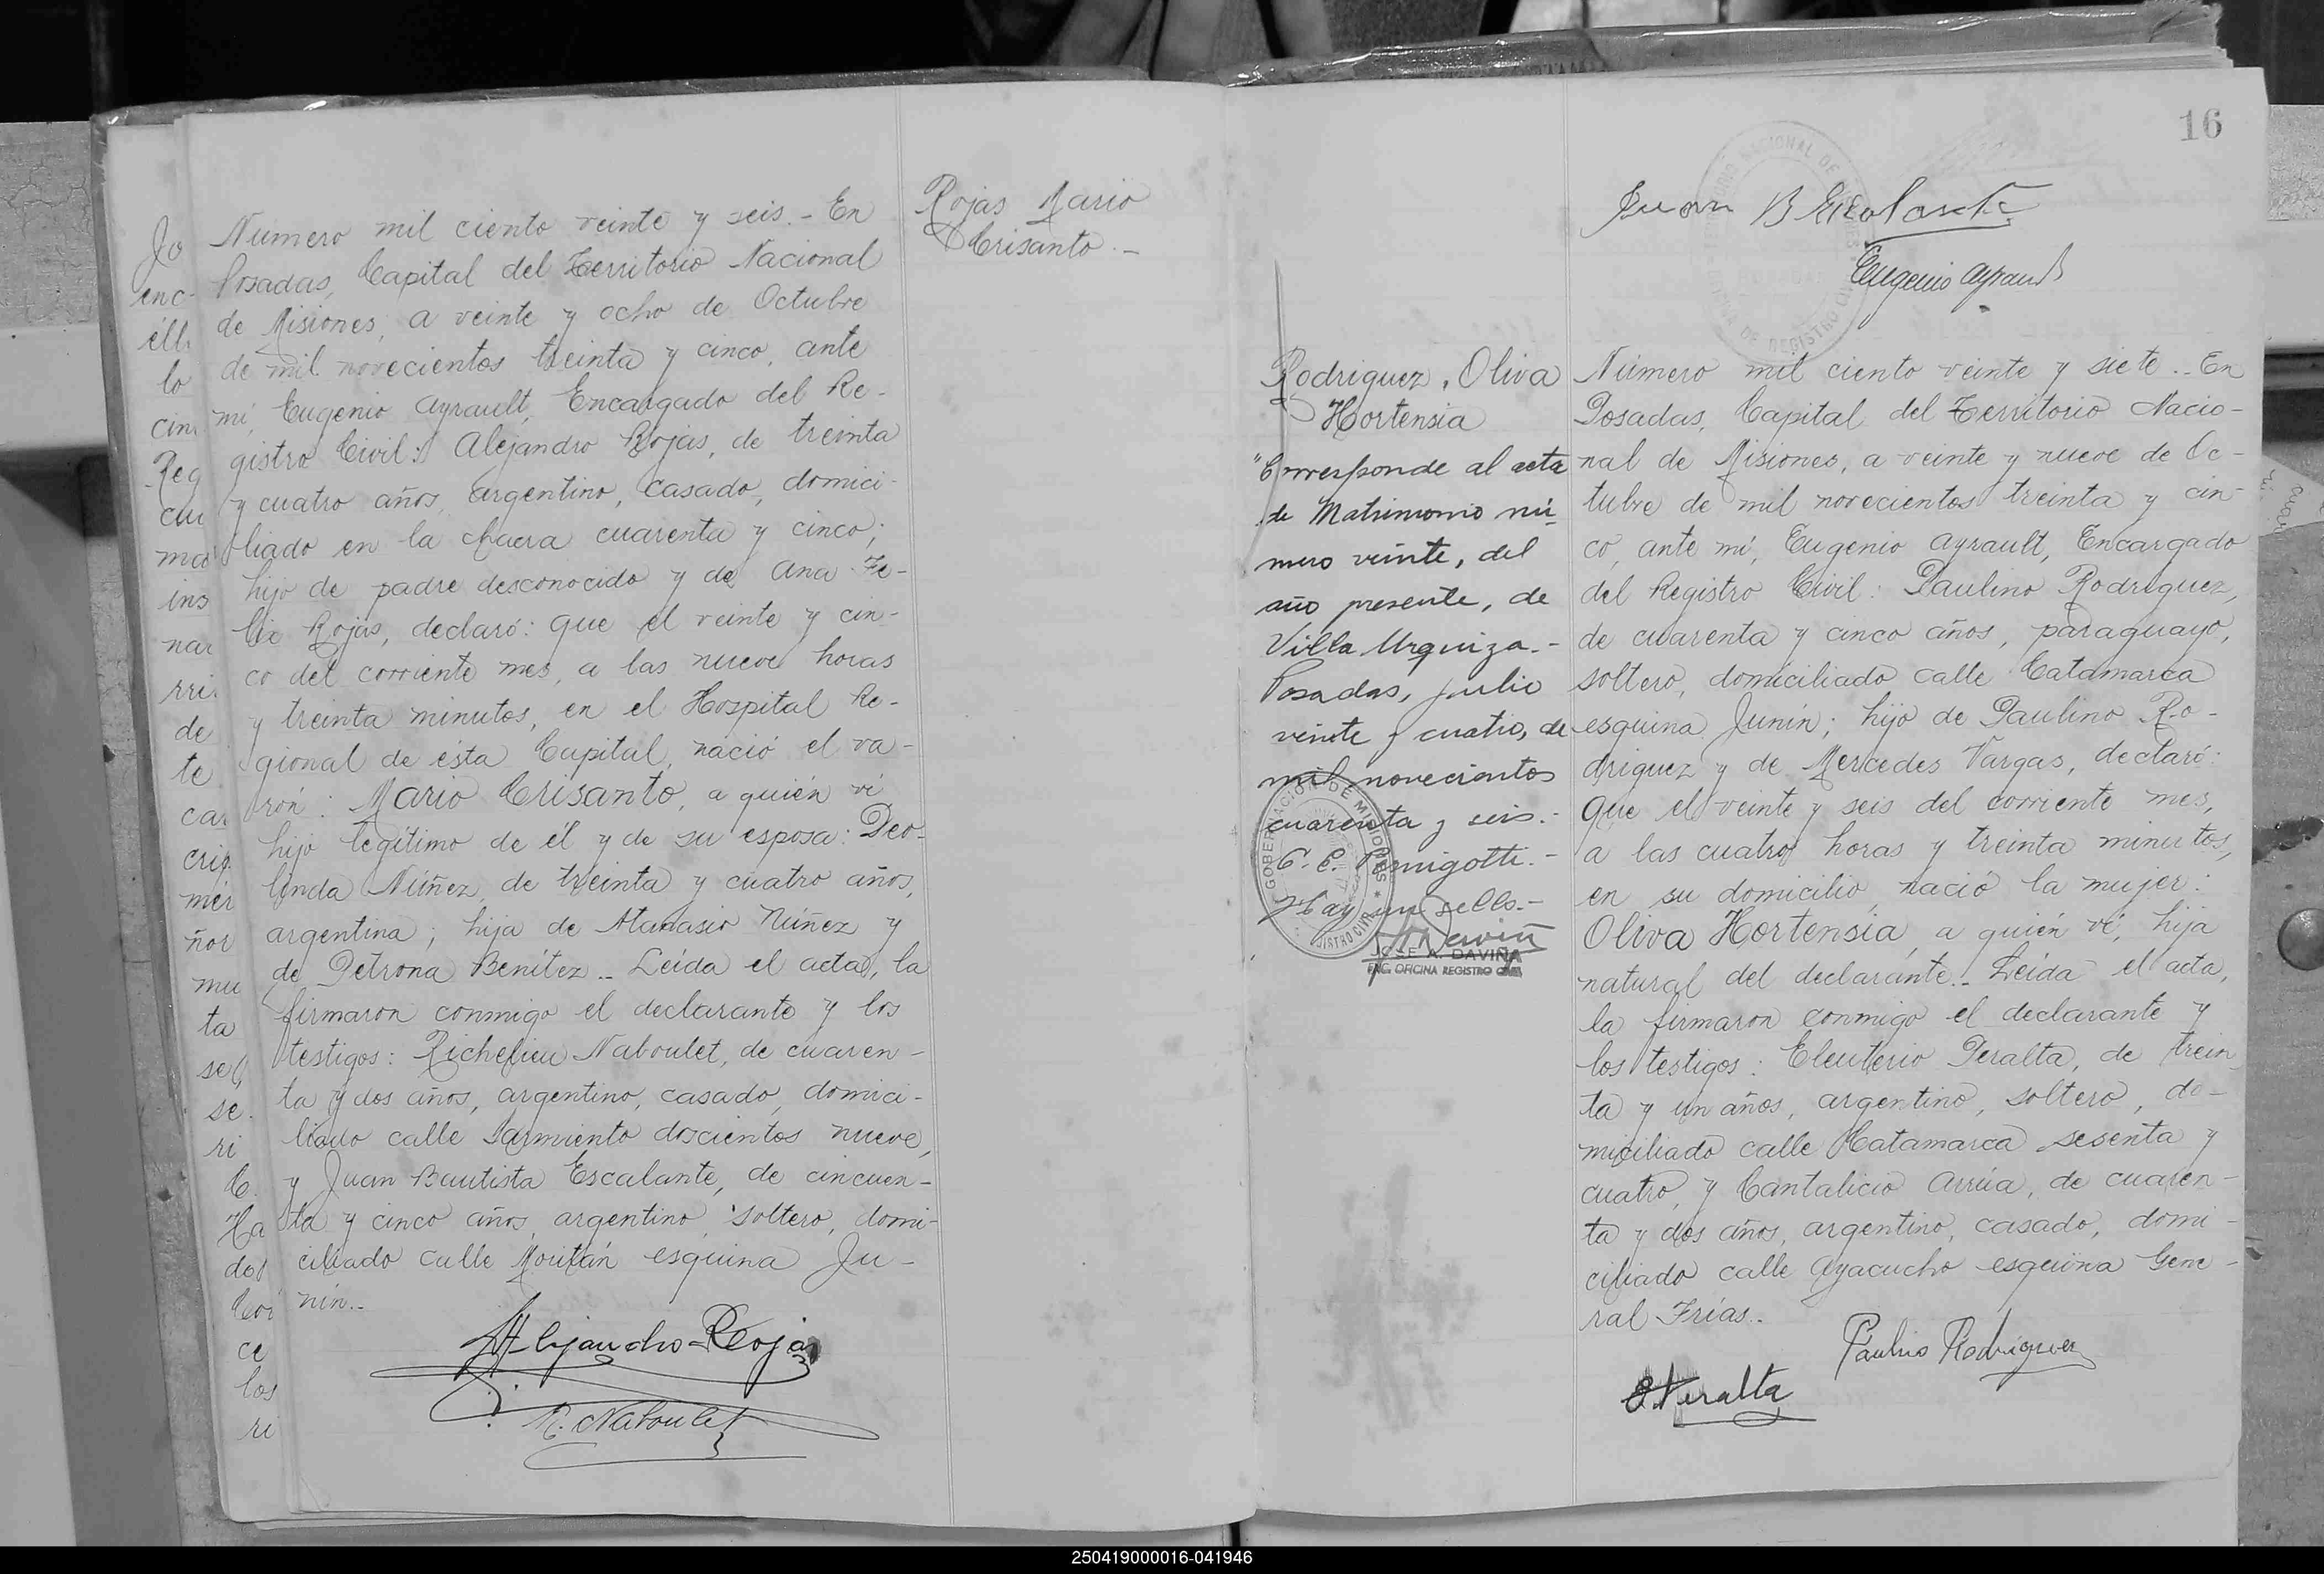 Número mil ciento veinte y seis.- En
Posadas, Capital del Territorio Nacional
de Misiones, a veinte y ocho de Octubre
de mil novecientos treinta y cinco, ante
mí, Eugenio Ayrault, Encargado del Re-
gistro Civil: Alejandro Rojas, de treinta
y cuatro años, argentino, casado, domici-
liado en la chacra cuarenta y cinco;
hijo de padre desconocido y de Ana Fe-
liz Rojas, declaró: que el veinte y cin-
co del corriente mes, a las nueve horas
y treinta minutos, en el Hospital Re-
gional de ésta Capital, nació el va-
rón: Mario Crisanto, a quién ví
hijo legítimo de él y de su esposa: Deo-
linda Núñez, de treinta y cuatro años,
argentina; hija de Atanasio Núñez y
de Petrona Benítez.- Leída el acta, la
firmaron conmigo el declarante y los
testigos: Richelieu Naboulet, de cuaren-
ta y dos años, argentino, casado, domici-
liado calle Sarmiento doscientos nueve,
y Juan Bautista Escalante, de cincuen-
ta y cinco años, argentino, soltero, domi-
ciliado calle Moritán esquina Ju-
nín.-
Alejandro Rojas
R. Naboulet
Rojas Mario
Crisanto.-
Jo
enc-
éll
lo
cin
Reg
cu
ma
ins
nar
rri
de
te
car
crip
mer
ñor
mu
ta
sel
se
ri
C.
Ha
do
Cor
ce
los
ri
16
Juan B Escalante
Eugenio Ayrault
Rodriguez, Oliva
Hortensia
"Corresponde al acta
de Matrimonio nú-
mero veinte, del
año presente, de
Villa Urquiza.-
Posadas, julio
veinte y cuatro, de
mil novecientos
cuarenta y seis.-
Hay un sello.-
GOBERNACION DE MISIONES
JOSE A. DAVIÑA
ENC. OFICINA REGISTRO CIVIL
Número mil ciento veinte y siete.- En
Posadas, Capital del Territorio Nacio-
nal de Misiones, a veinte y nueve de Oc-
tubre de mil novecientos treinta y cin-
co, ante mí, Eugenio Ayrault, Encargado
del Registro Civil: Paulino Rodriguez,
de cuarenta y cinco años, paraguayo,
soltero, domiciliado calle Catamarca
esquina Junín; hijo de Paulino Ro-
driguez y de Mercedes Vargas, declaró:
que el veinte y seis del corriente mes,
a las cuatro horas y treinta minutos,
en su domicilio, nació la mujer:
Oliva Hortensia a quién ví, hija
natural del declarante.- Leída el acta,
la firmaron conmigo el declarante y
los testigos: Eleuterio Peralta, de trein
ta y un años, argentino, soltero, do-
miciliado calle Catamarca sesenta y
cuatro, y Cantalicio Arrúa, de cuaren-
ta y dos años, argentino, casado, domi-
ciliado calle Ayacucho esquina Gene-
ral Frías.-
Paulino Rodriguez
E. Peralta
250419000016-041946